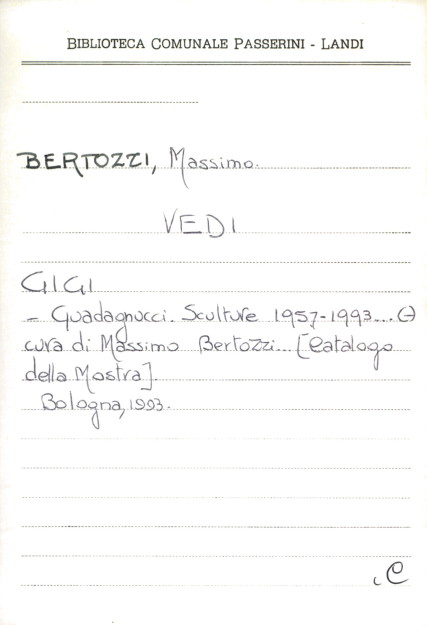 BIBLIOTECA COMUNALE PASSERINI - LANDI
BERTOZZI, Massimo.
VEDI
GIGI
- Guadagnucci. Sculture 1957-1993... A
cura di Massimo Bertozzi... [Catalogo
della Mostra].
Bologna, 1993.
C